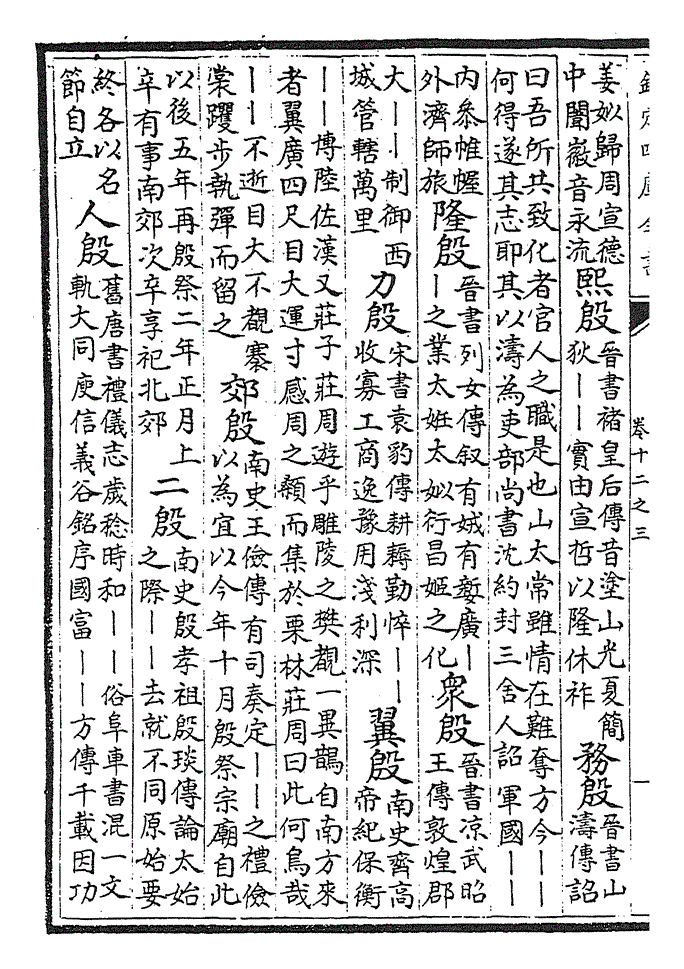 欽定四庫全書
卷十二之三
一
姜姒歸周宣德
中闈徽音永流
熙殷
晉書褚皇后傳昔塗山光夏簡
狄——實由宣哲以隆休祚
務殷
晉書山
濤傳詔
曰吾所共致化者官人之職是也山太常雖情在難奪方今——
何得遂其志耶其以濤為吏部尚書沈約封三舍人詔軍國——
內叅帷幄
外濟師旅
隆殷
晉書列女傳叙有娀有㜪廣—
—之業太姙太姒衍昌姬之化
衆殷
晉書涼武昭
王傳敦煌郡
大——制御西
城管轄萬里
力殷
宋書袁豹傳耕耨勤悴——
收寡工商逸豫用淺利深
翼殷
南史齊高
帝紀保衡
——博陸佐漢又莊子莊周遊乎雕陵之樊觀一異鵲自南方來
者翼廣四尺目大運寸感周之顙而集於栗林莊周曰此何鳥哉
——不逝目大不覩褰
裳躩步執彈而留之
郊殷
南史王儉傳有司奏定——之禮儉
以為宜以今年十月殷祭宗廟自此
以後五年再殷祭二年正月上
辛有事南郊次辛享祀北郊
二殷
南史殷孝祖殷琰傳論太始
之際——去就不同原始要
終各以名
節自立
人殷
舊唐書禮儀志歲稔時和——俗阜車書混一文
軌大同庾信義谷銘序國富——方傳千載因功